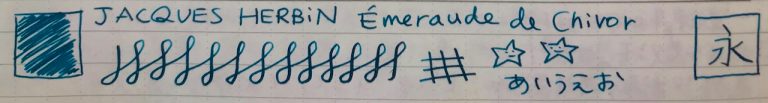 JACQUES HERBiN Émeraude de Chivor
あいうえお
永